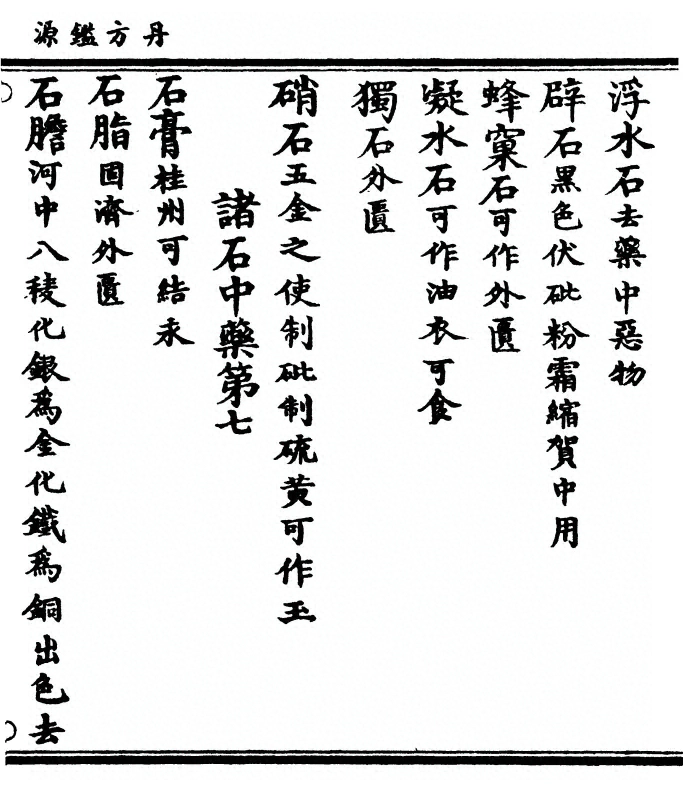 丹方鑑源
浮水石去藥中惡物
辟石黑色伏砒粉霜縮賀中用
蜂窠石可作外匱
凝水石可作油衣可食
獨石外匱
硝石五金之使制砒制硫黄可作玉
諸石中藥第七
石膏桂州可結汞
石脂固濟外匱
石膽河中八稜化銀爲金化鐵爲銅出色去